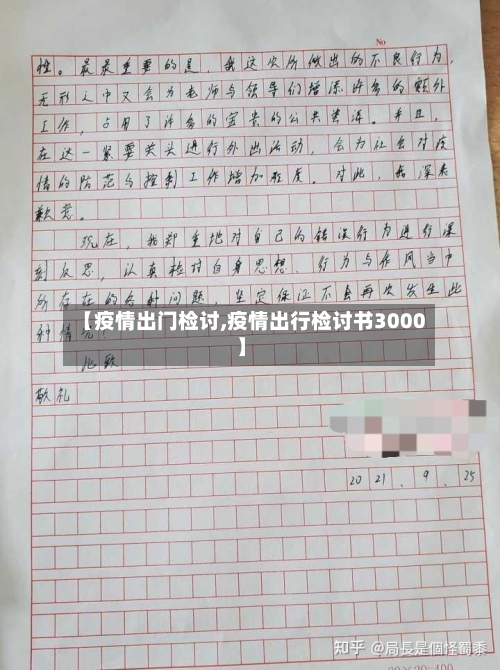 No
性。最最重要的是，我这次所做出的不良行为，
无形之中又会为老师与领导们增添许多的额外
工作，占用了许多的宝贵的公共资源。并且，
在这一紧要关头进行外出活动，会为社会对疫
情的防范与控制工作增加难度。对此，我深表
歉意。
现在，我郑重地对自己的错误行为进行深
刻反思，认真检讨自身思想、行为与作风当中
所存在的各种问题，坚定保证不会再次发生此
种情况
【疫情出门检讨,疫情出行检讨书3000
】
此致
敬礼
2021.9.25
知乎 @局長是個怪蜀黍